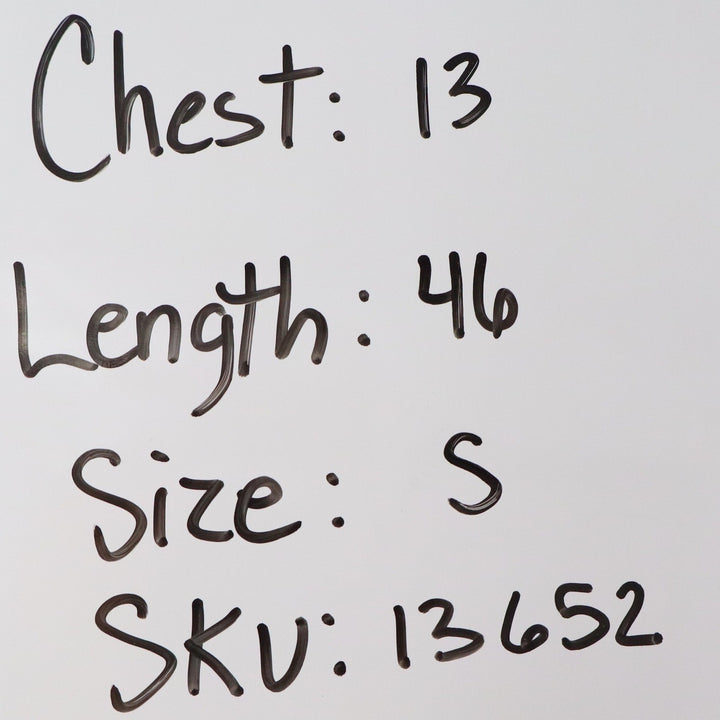 Chest: 13
Length: 46
Size: S
SKU: 13652